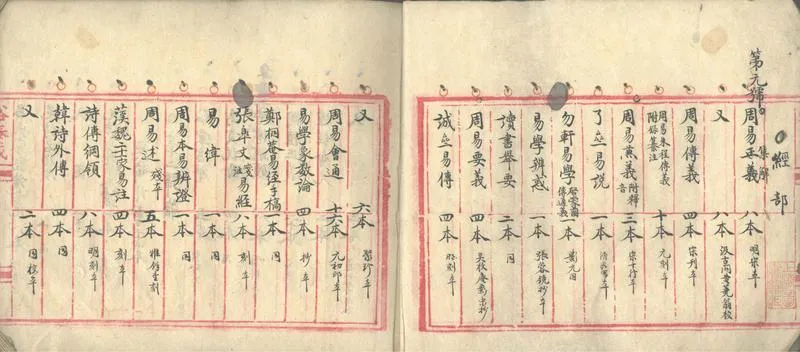 第元號
經部
周易正義 集解 八本 明宋本
又 八本
周易傳義 四本 宋刊本
周易朱程傳義附錄纂注 十本 元刻本
周易兼義 附釋音 三本 宋十行本
了齋易說 一本
勿軒易學 啟蒙圖傳通義 一本 影元
易學辨惑 一本 張蓉鏡抄本
讀書舉要 二本 仝
周易要義 四本
誠齋易傳 四本 明刻本
又 六本 聚珍本
周易會通 十六本 元初印本
易學象數論 四本 抄本
鄭桐菴易經手稿 一本
張皋文注 易經 八本 刻本
易緯 一本 仝
周易本易辨證 一本 仝
周易述 殘本 五本 雅雨堂刻
漢魏二十一家易註 四本 刻本
詩傳綱領 八本 明刻本
韓詩外傳 四本 仝
又 二本 仝 校本